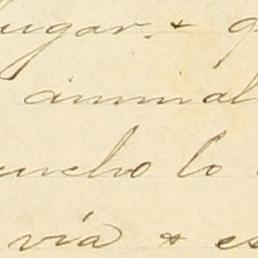 lugar. +
animal
mucho lo
vía +